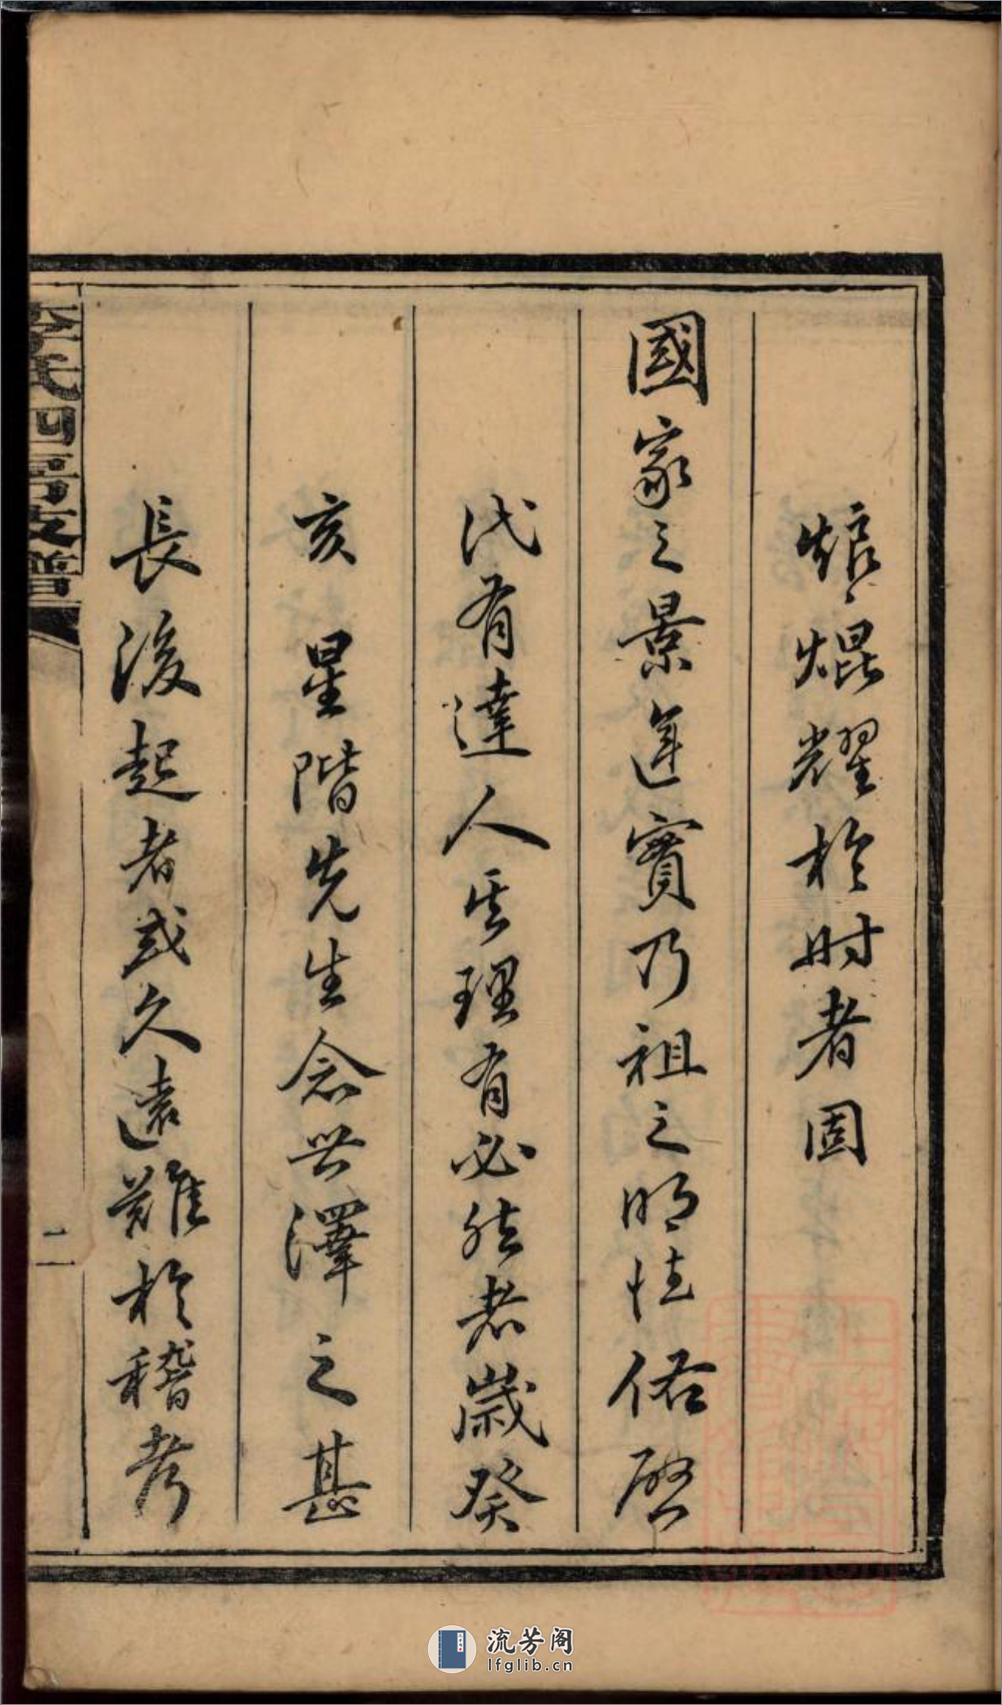 焜耀於时者固
國家之景運實乃祖之明德佑啓
代有達人其理有必然者歲癸
亥星階先生念世澤之甚
長後起者或久遠難於稽考
李氏四房支譜
二
流芳阁
lfglib.cn